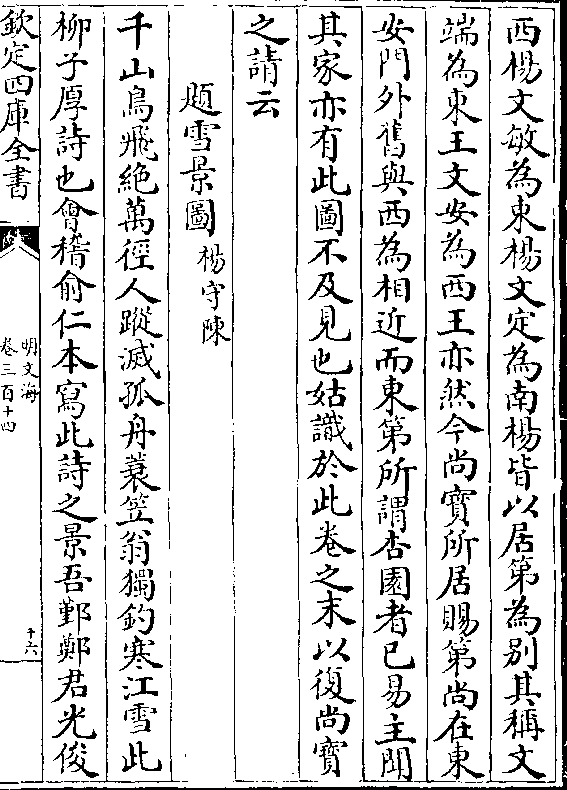 西楊文敏為東楊文定為南楊皆以居第為别其稱文
端為東王文安為西王亦然今尚寶所居賜第尚在東
安門外舊與西為相近而東第所謂杏園者已易主聞
其家亦有此圖不及見也姑識於此卷之末以復尚寶
之請云
題雪景圖 楊守陳
千山鳥飛絶萬徑人蹤滅孤舟蓑笠翁獨釣寒江雪此
柳子厚詩也會稽俞仁本寫此詩之景吾鄞鄭君光俊
欽定四庫全書
明文海
卷三百十四
十六